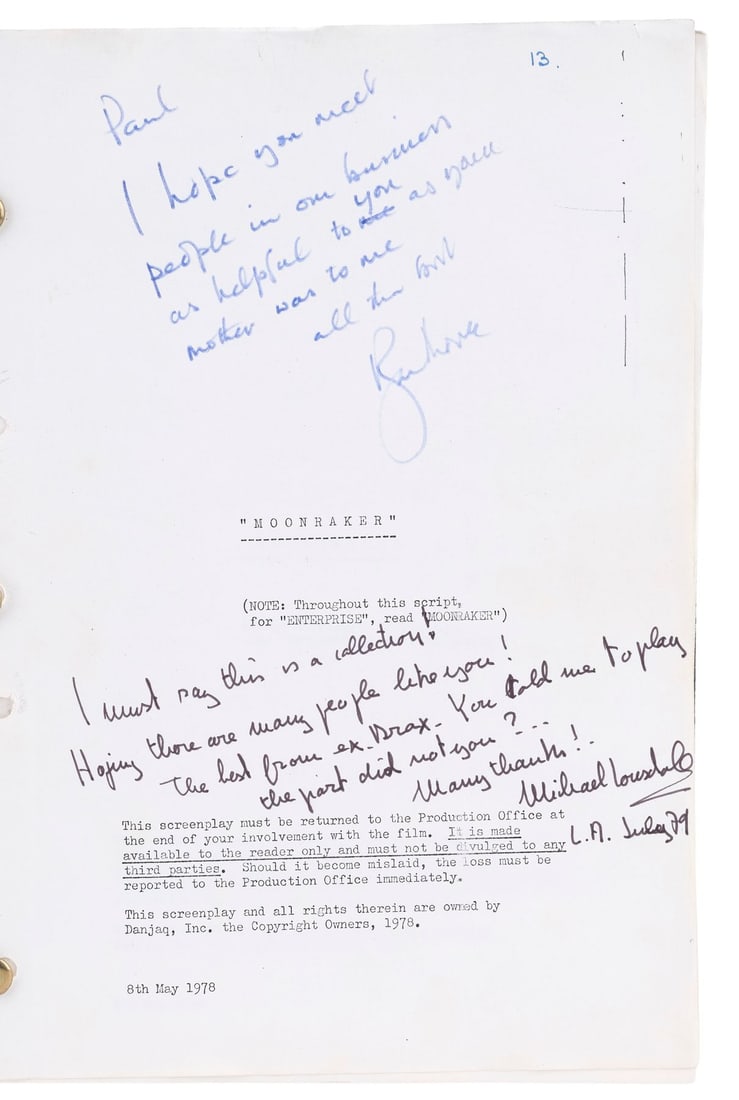 13.
Paul
I hope you meet
people in our business
you
as helpful to me as your
mother was to me
all the best
"MOONRAKER"
(NOTE: Throughout this script,
for "ENTERPRISE", read "MOONRAKER")
I must say this is a collection!
Hoping there are many people like you!
The best from ex-Drax. You told me to play
the part did not you?...
Many thanks!.
Michael Lonsdale
L.A. July 79
This screenplay must be returned to the Production Office at
the end of your involvement with the film. It is made
available to the reader only and must not be divulged to any
third parties. Should it become mislaid, the loss must be
reported to the Production Office immediately.
This screenplay and all rights therein are owned by
Danjaq, Inc. the Copyright Owners, 1978.
8th May 1978